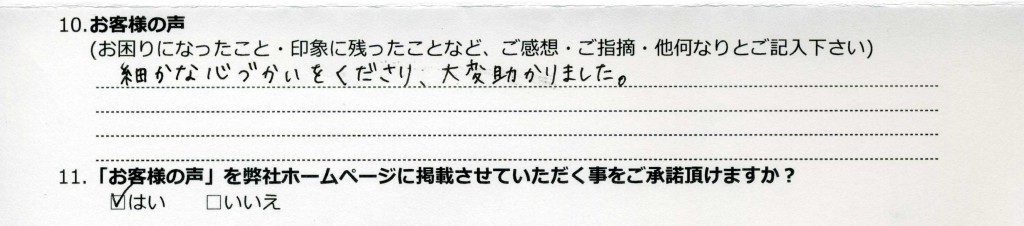 10.お客様の声
(お困りになったこと・印象に残ったことなど、ご感想・ご指摘・他何なりとご記入下さい)
細かな心づかいをくださり、大変助かりました。
11.「お客様の声」を弊社ホームページに掲載させていただく事をご承諾頂けますか？
☑はい □いいえ